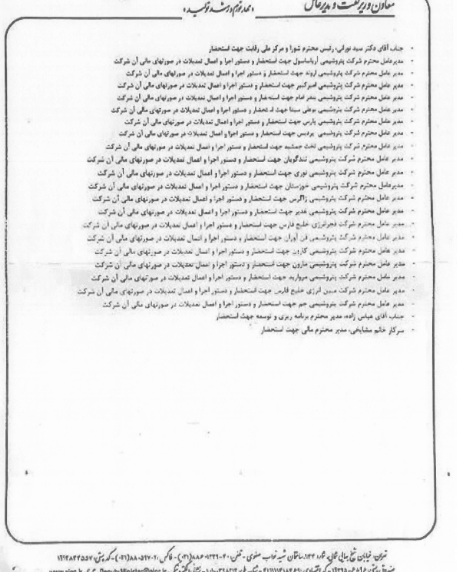 معاون وزیر نفت و مدیرعامل
- جناب آقای دکتر سید نورانی، رئیس محترم شورا و مرکز ملی رقابت جهت استحضار
- مدیر عامل محترم شرکت پتروشیمی آریاساسول جهت استحضار و دستور اجرا و اعمال تعدیلات در صورتهای مالی آن شرکت
- مدیر عامل محترم شرکت پتروشیمی اروند جهت استحضار و دستور اجرا و اعمال تعدیلات در صورتهای مالی آن شرکت
- مدیر عامل محترم شرکت پتروشیمی امیرکبیر جهت استحضار و دستور اجرا و اعمال تعدیلات در صورتهای مالی آن شرکت
- مدیر عامل محترم شرکت پتروشیمی بندر امام جهت استحضار و دستور اجرا و اعمال تعدیلات در صورتهای مالی آن شرکت
- مدیر عامل محترم شرکت پتروشیمی بوعلی سینا جهت استحضار و دستور اجرا و اعمال تعدیلات در صورتهای مالی آن شرکت
- مدیر عامل محترم شرکت پتروشیمی پارس جهت استحضار و دستور اجرا و اعمال تعدیلات در صورتهای مالی آن شرکت
- مدیر عامل محترم شرکت پتروشیمی پردیس جهت استحضار و دستور اجرا و اعمال تعدیلات در صورتهای مالی آن شرکت
- مدیر عامل محترم شرکت پتروشیمی تخت جمشید جهت استحضار و دستور اجرا و اعمال تعدیلات در صورتهای مالی آن شرکت
- مدیر عامل محترم شرکت پتروشیمی تندگویان جهت استحضار و دستور اجرا و اعمال تعدیلات در صورتهای مالی آن شرکت
- مدیر عامل محترم شرکت پتروشیمی نوری جهت استحضار و دستور اجرا و اعمال تعدیلات در صورتهای مالی آن شرکت
- مدیر عامل محترم شرکت پتروشیمی خوزستان جهت استحضار و دستور اجرا و اعمال تعدیلات در صورتهای مالی آن شرکت
- مدیر عامل محترم شرکت پتروشیمی زاگرس جهت استحضار و دستور اجرا و اعمال تعدیلات در صورتهای مالی آن شرکت
- مدیر عامل محترم شرکت پتروشیمی غدیر جهت استحضار و دستور اجرا و اعمال تعدیلات در صورتهای مالی آن شرکت
- مدیر عامل محترم شرکت فجرانرژی خلیج فارس جهت استحضار و دستور اجرا و اعمال تعدیلات در صورتهای مالی آن شرکت
- مدیر عامل محترم شرکت پتروشیمی فن آوران جهت استحضار و دستور اجرا و اعمال تعدیلات در صورتهای مالی آن شرکت
- مدیر عامل محترم شرکت پتروشیمی کارون جهت استحضار و دستور اجرا و اعمال تعدیلات در صورتهای مالی آن شرکت
- مدیر عامل محترم شرکت پتروشیمی مارون جهت استحضار و دستور اجرا و اعمال تعدیلات در صورتهای مالی آن شرکت
- مدیر عامل محترم شرکت پتروشیمی مروارید جهت استحضار و دستور اجرا و اعمال تعدیلات در صورتهای مالی آن شرکت
- مدیر عامل محترم شرکت مبین انرژی خلیج فارس جهت استحضار و دستور اجرا و اعمال تعدیلات در صورتهای مالی آن شرکت
- مدیر عامل محترم شرکت پتروشیمی جم جهت استحضار و دستور اجرا و اعمال تعدیلات در صورتهای مالی آن شرکت
- جناب آقای عباس زاده، مدیر محترم برنامه ریزی و توسعه جهت استحضار
- سرکار خانم مشایخی، مدیر محترم مالی جهت استحضار
تهران، خیابان شیخ بهایی شمالی، شماره ۱۴۴، ساختمان شهید نواب صفوی - تلفن: